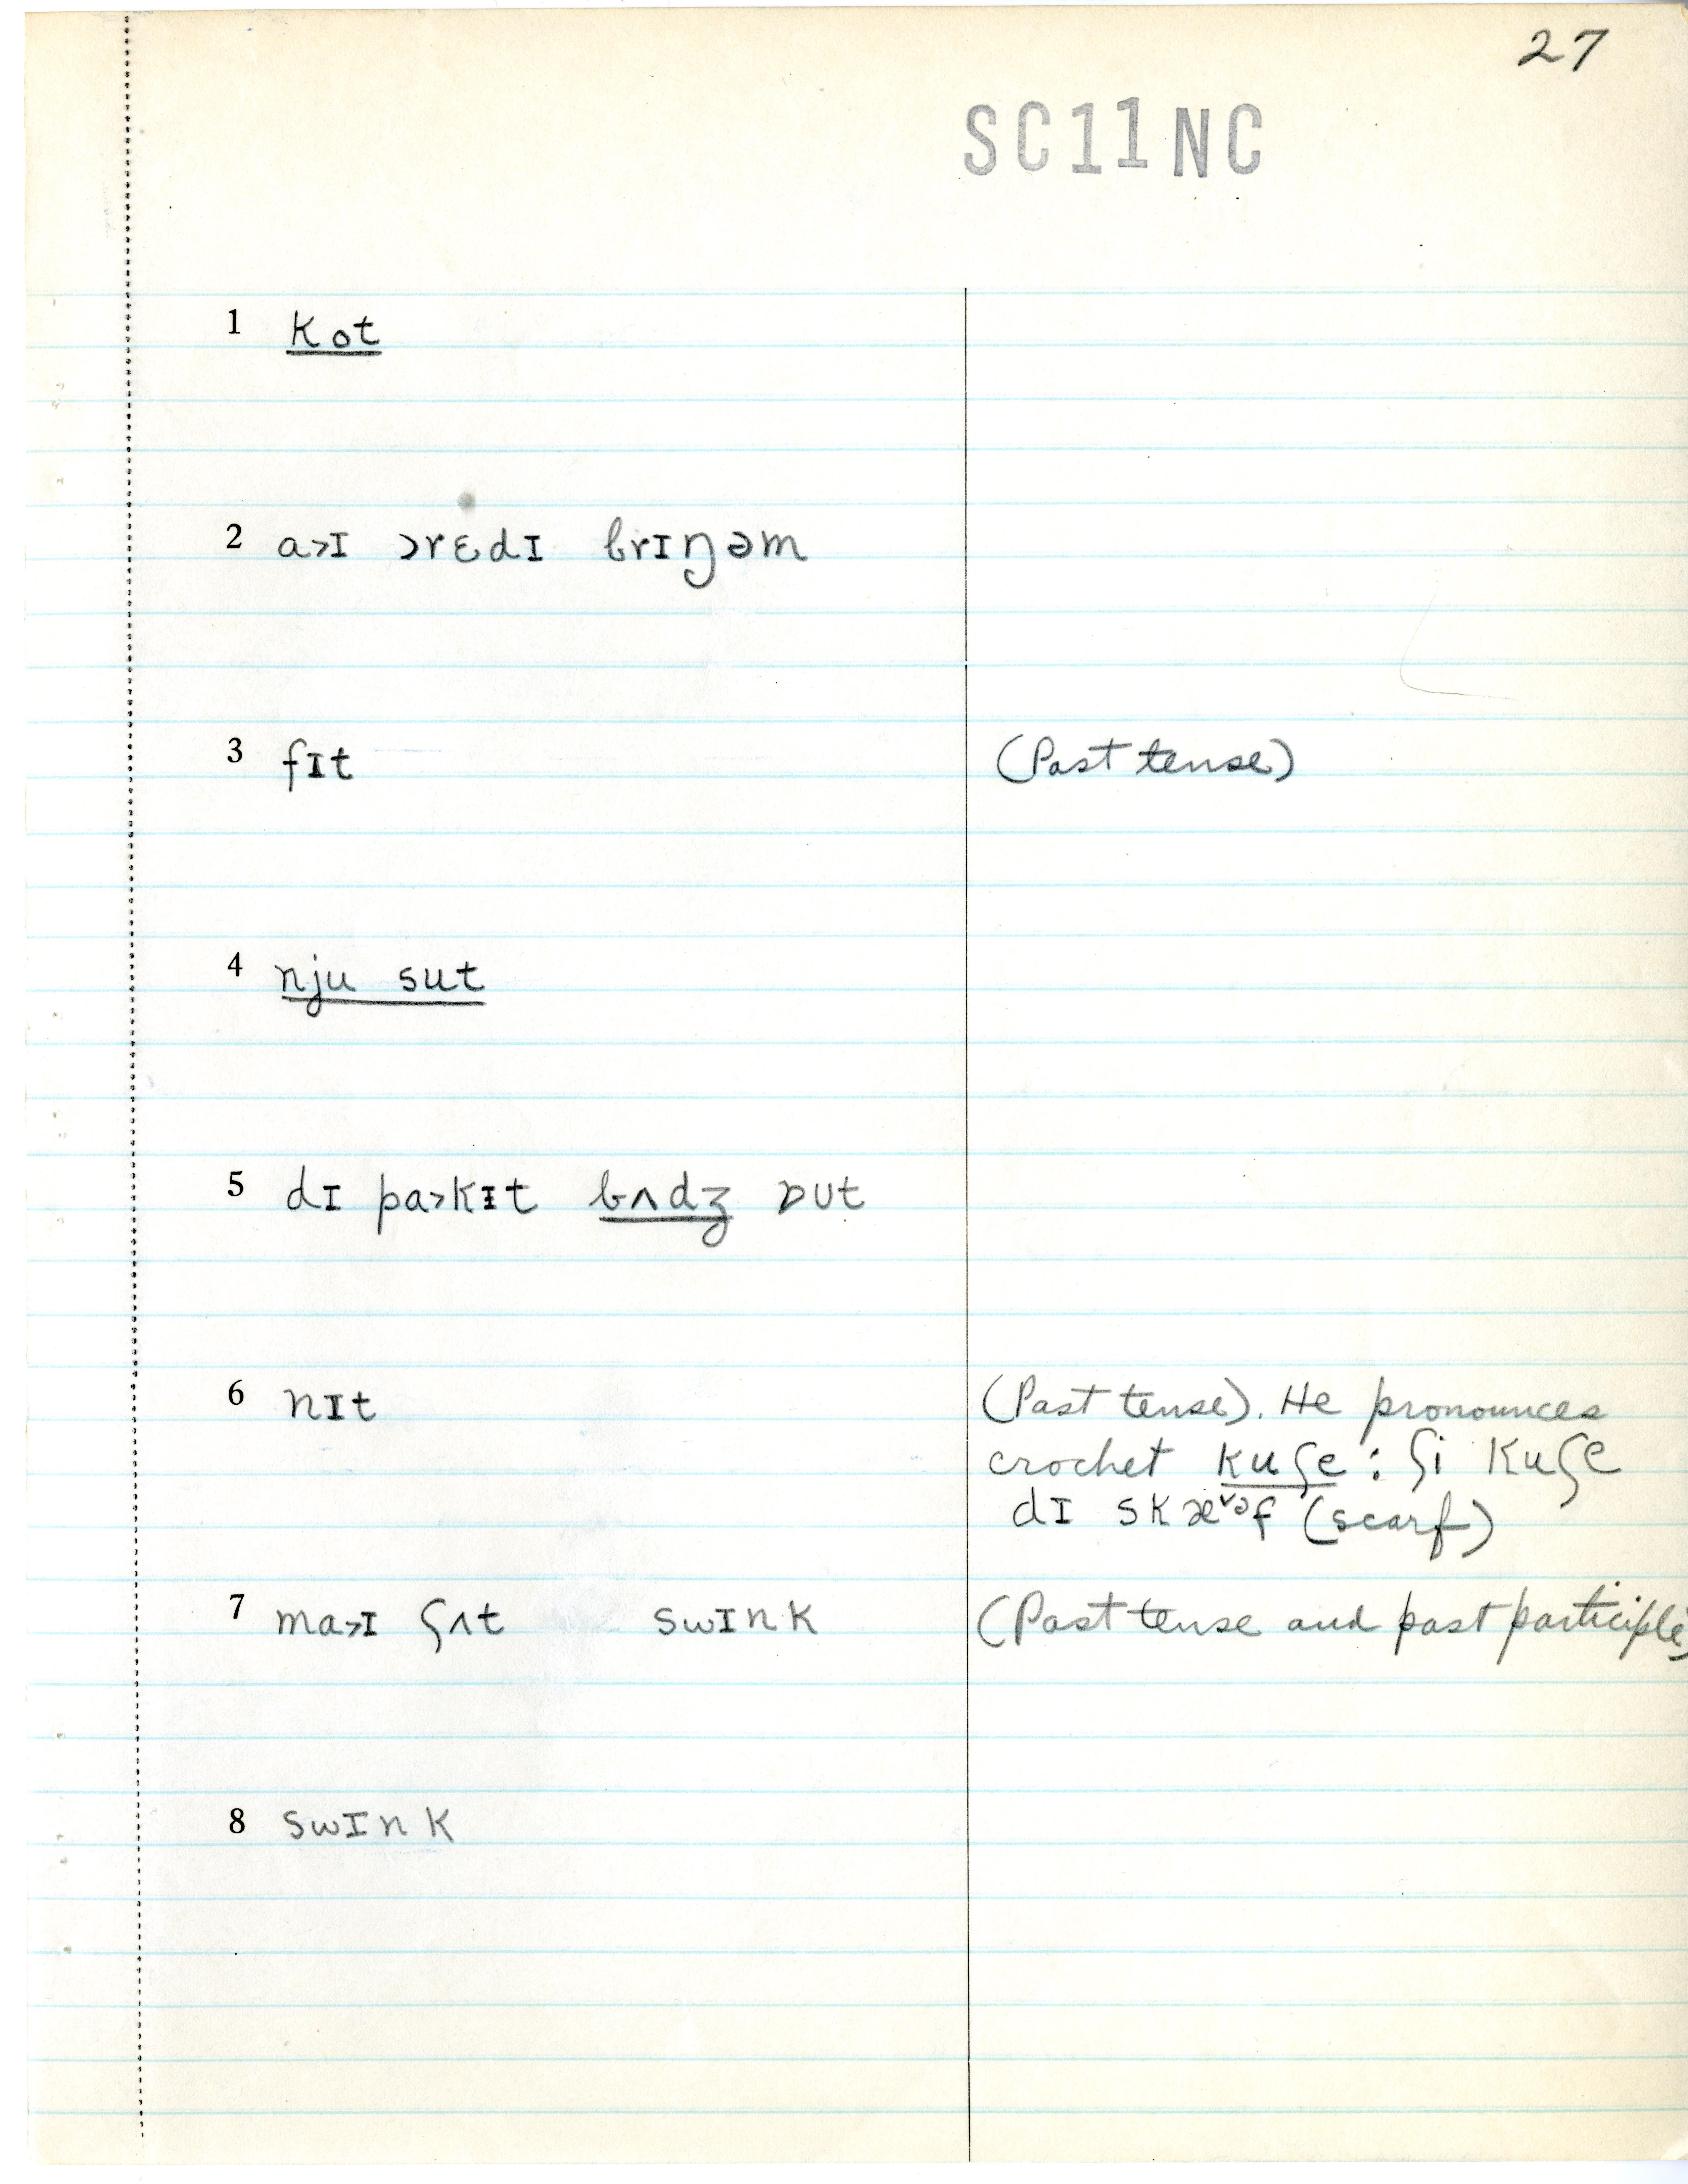 27
SC11NC
1 kot
2 a>ɪ ɔrɛdɪ brɪŋəm
3 fɪt (Past tense)
4 nju sut
5 dɪ pa>kɪt bʌdʒ ɒut
6 nɪt (Past tense). He pronounces
crochet kuʃe: ʃi kuʃe
dɪ skæ˅ᵊf (scarf)
7 ma>ɪ ʃʌt swɪnk (Past tense and past participle)
8 swɪnk